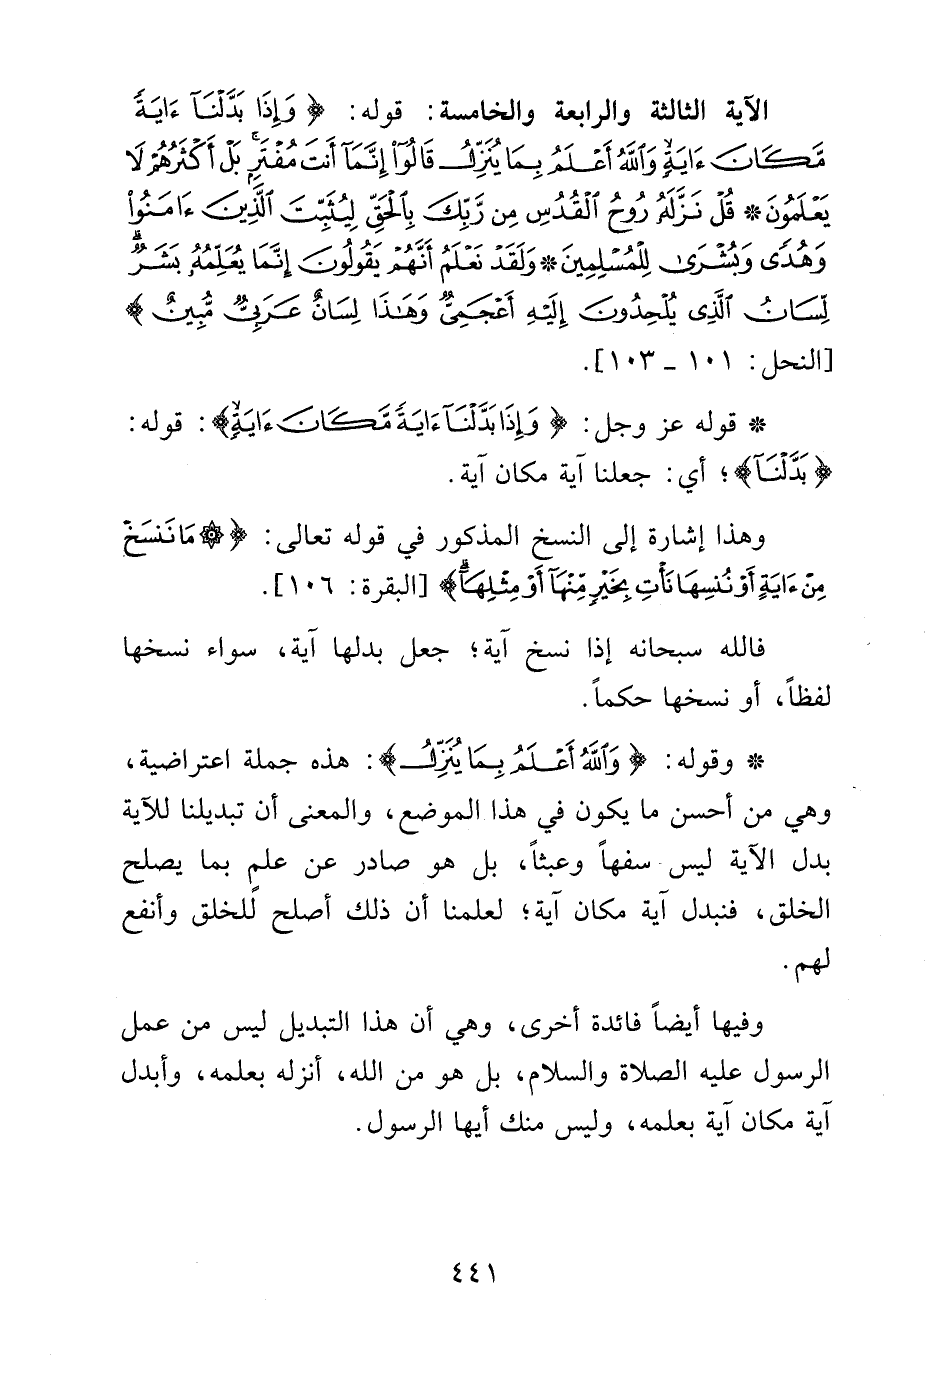 الآية الثالثة والرابعة والخامسة: قوله: ﴿ وَإِذَا بَدَّلْنَآ ءَايَةً
مَّكَانَ ءَايَةٍۙ وَٱللَّهُ أَعْلَمُ بِمَا يُنَزِّلُ قَالُوٓا۟ إِنَّمَآ أَنتَ مُفْتَرٍۭ ۚ بَلْ أَكْثَرُهُمْ لَا
يَعْلَمُونَ * قُلْ نَزَّلَهُۥ رُوحُ ٱلْقُدُسِ مِن رَّبِّكَ بِٱلْحَقِّ لِيُثَبِّتَ ٱلَّذِينَ ءَامَنُوا۟
وَهُدًى وَبُشْرَىٰ لِلْمُسْلِمِينَ * وَلَقَدْ نَعْلَمُ أَنَّهُمْ يَقُولُونَ إِنَّمَا يُعَلِّمُهُۥ بَشَرٌ ۗ
لِّسَانُ ٱلَّذِى يُلْحِدُونَ إِلَيْهِ أَعْجَمِىٌّ وَهَٰذَا لِسَانٌ عَرَبِىٌّ مُّبِينٌ ﴾
[النحل: ١٠١ ـ ١٠٣].
* قوله عز وجل: ﴿ وَإِذَا بَدَّلْنَآ ءَايَةً مَّكَانَ ءَايَةٍۙ ﴾: قوله:
﴿ بَدَّلْنَآ ﴾؛ أي: جعلنا آية مكان آية.
وهذا إشارة إلى النسخ المذكور في قوله تعالى: ﴿ ۞ مَا نَنسَخْ
مِنْ ءَايَةٍ أَوْ نُنسِهَا نَأْتِ بِخَيْرٍ مِّنْهَآ أَوْ مِثْلِهَآ ۗ ﴾ [البقرة: ١٠٦].
فالله سبحانه إذا نسخ آية؛ جعل بدلها آية، سواء نسخها
لفظاً، أو نسخها حكماً.
* وقوله: ﴿ وَٱللَّهُ أَعْلَمُ بِمَا يُنَزِّلُ ﴾: هذه جملة اعتراضية،
وهي من أحسن ما يكون في هذا الموضع، والمعنى أن تبديلنا للآية
بدل الآية ليس سفهاً وعبثاً، بل هو صادر عن علم بما يصلح
الخلق، فنبدل آية مكان آية؛ لعلمنا أن ذلك أصلح للخلق وأنفع
لهم.
وفيها أيضاً فائدة أخرى، وهي أن هذا التبديل ليس من عمل
الرسول عليه الصلاة والسلام، بل هو من الله، أنزله بعلمه، وأبدل
آية مكان آية بعلمه، وليس منك أيها الرسول.
٤٤١